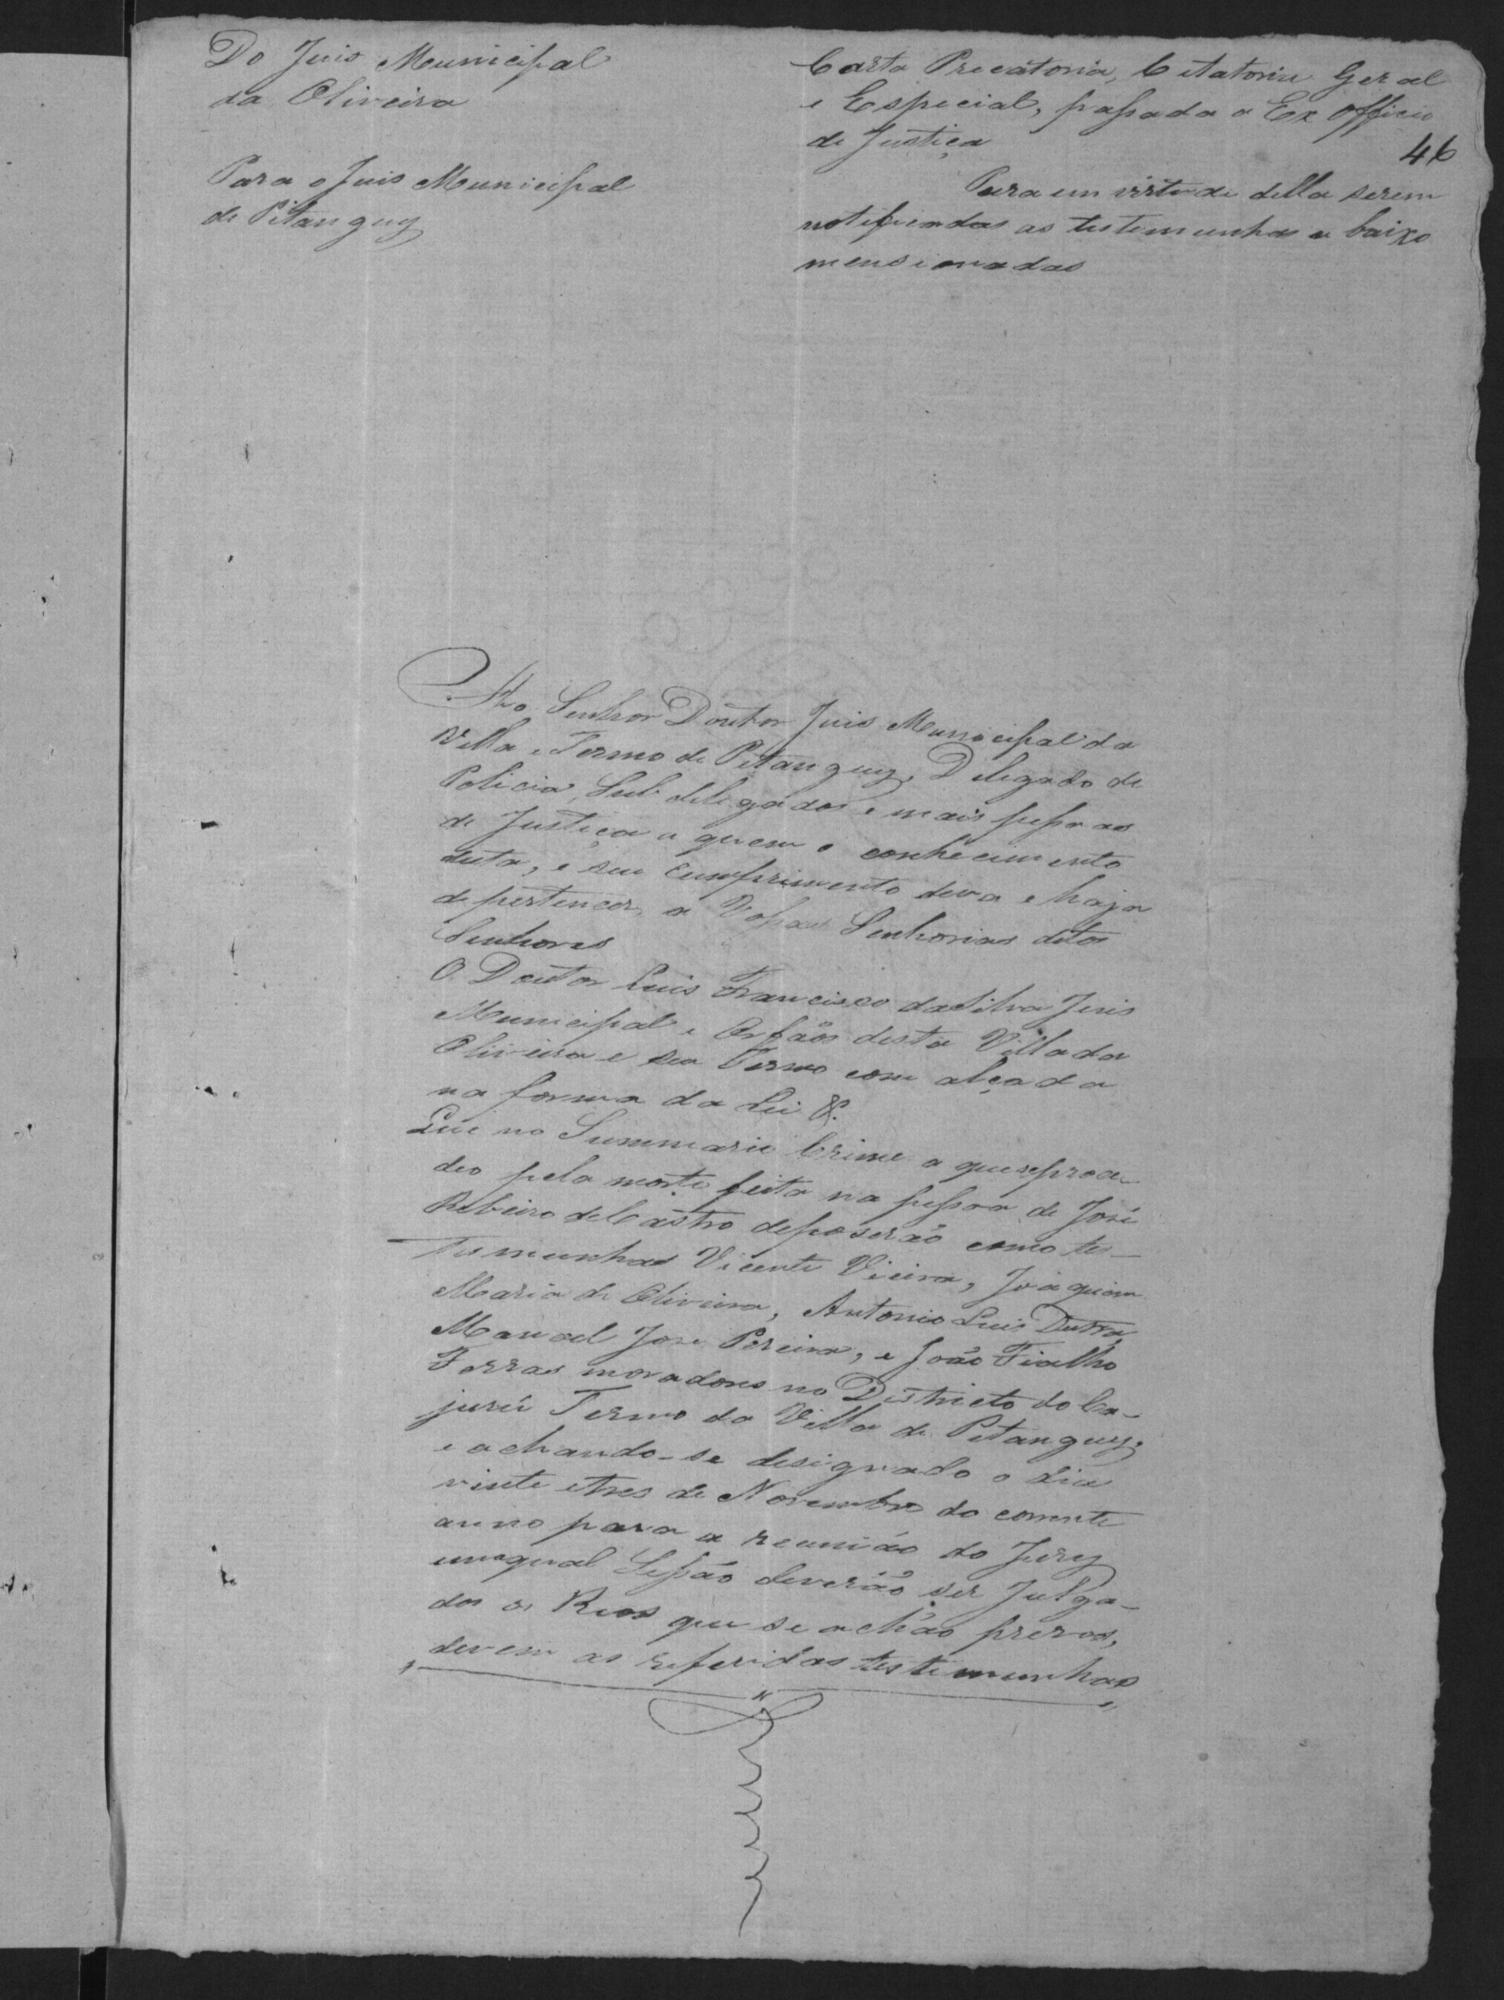 Do Juis Municipal
da Oliveira
Para o Juis Municipal
de Pitanguy
Carta Precatoria, Citatoria Geral
e Especial, passada a Ex Officio
de Justiça
46
Para em virtude della serem
notificadas as testemunhas a baixo
mensionadas
Ao Senhor Doutor Juis Municipal da
Villa e Termo de Pitanguy, Delegado de
Policia, Sub delegados e mais pessoas
de Justiça a quem o conhecimento
desta, e seu cumprimento deva e haja
de pertencer, a Vossas Senhorias ditos
Senhores
O Doutor Luis Francisco da Silva Juis
Municipal e Orfãos desta Villa da
Oliveira e seu Termo com alçada
na forma da Lei &.
Que no Summario Crime a que se proce-
deo pela morte feita na pessoa de José
Ribeiro de Castro deposerão como tes-
temunhas Vicente Vieira, Joaquim
Maria de Oliveira, Antonio Luis Dutra,
Manoel Jose Pereira, e João Fialho
Ferras moradores no Districto do Ca-
jurú Termo da Villa de Pitanguy,
e achando-se designado o dia
vinte e tres de Novembro do corrente
anno para a reunião do Jury
em a qual Sessão deverão ser Julga-
dos os Reos que se achão prezos,
devem as referidas testemunhas